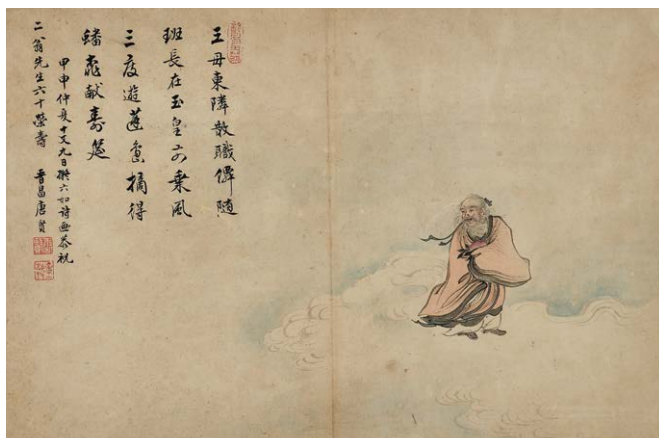 王母東隣散職僊隨
班長在玉皇前乘風
三度遊蓬島摘得
蟠桃獻壽筵
甲申仲夏十又九日六如詩画恭祝
二翁先生六十榮壽 晉昌唐